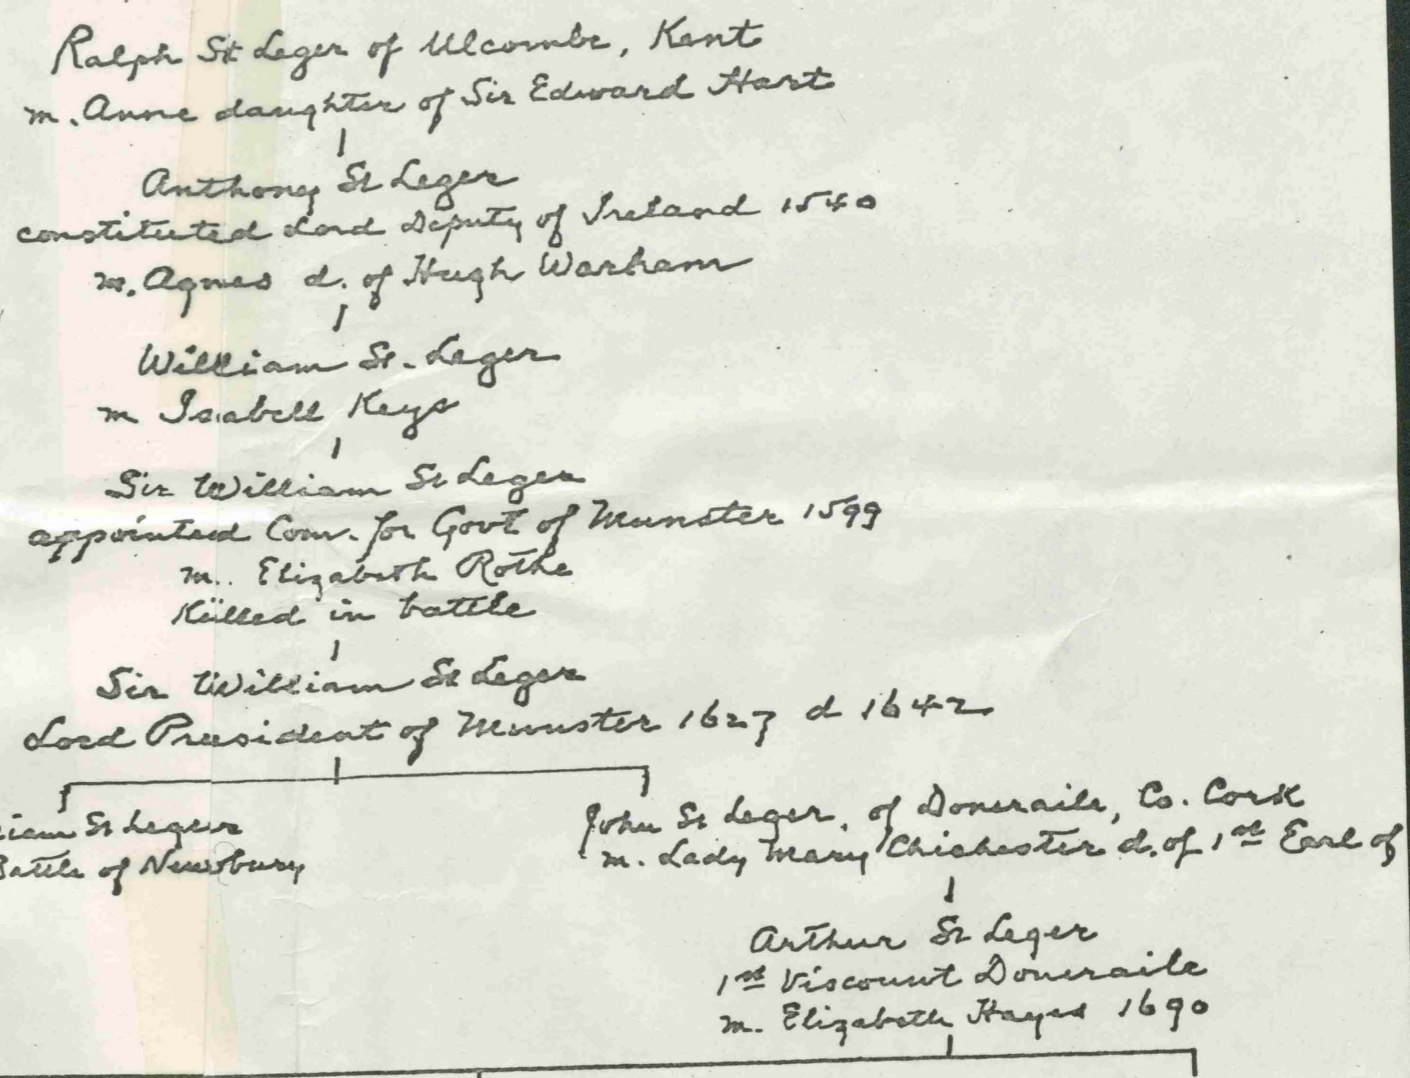 Ralph St Leger of Ulcombe, Kent
m. Anne daughter of Sir Edward Hart
Anthony St Leger
constituted Lord Deputy of Ireland 1540
m. Agnes d. of Hugh Warham
William St. Leger
m Isabell Keys
Sir William St Leger
appointed Com. for Govt of Munster 1599
m. Elizabeth Rothe
Killed in battle
Sir William St Leger
Lord President of Munster 1627 d 1642
iam St Leger
Battle of Newbury
John St Leger, of Doneraile, Co. Cork
m. Lady Mary Chichester d. of 1st Earl of
Arthur St Leger
1st Viscount Doneraile
m. Elizabeth Hayes 1690